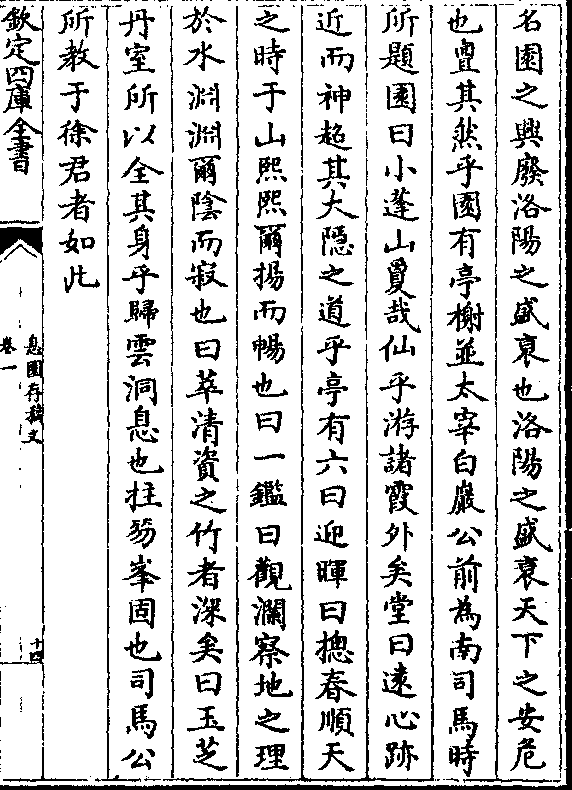 名園之興廢洛陽之盛衰也洛陽之盛衰天下之安危
也亶其然乎園有亭榭並太宰白巖公前為南司馬時
所題園曰小蓬山夐哉仙乎游諸霞外矣堂曰遠心跡
近而神超其大隱之道乎亭有六曰迎暉曰摠春順天
之時于山熙熙爾揚而暢也曰一鑑曰觀瀾察地之理
於水淵淵爾陰而寂也曰萃清資之竹者深矣曰玉芝
丹室所以全其身乎歸雲洞息也拄笏峯固也司馬公
所教于徐君者如此
欽定四庫全書
息園存稿文
卷一
十四